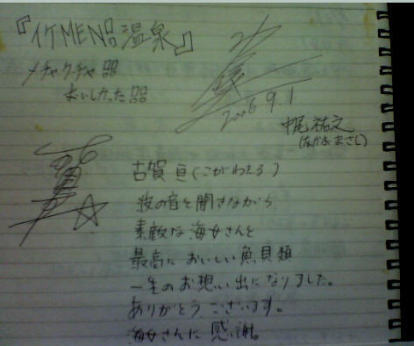 『イケMEN品温泉』
メチャクチャ品
おいしかった品
2006 9.1
中尾祐文
(なかお まさし)
古賀 亘(こがわたる)
波の音を聞きながら
素敵な海女さんと
最高においしい魚貝類
一生のお想い出になりました。
ありがとうございます。
海女さんに感謝。